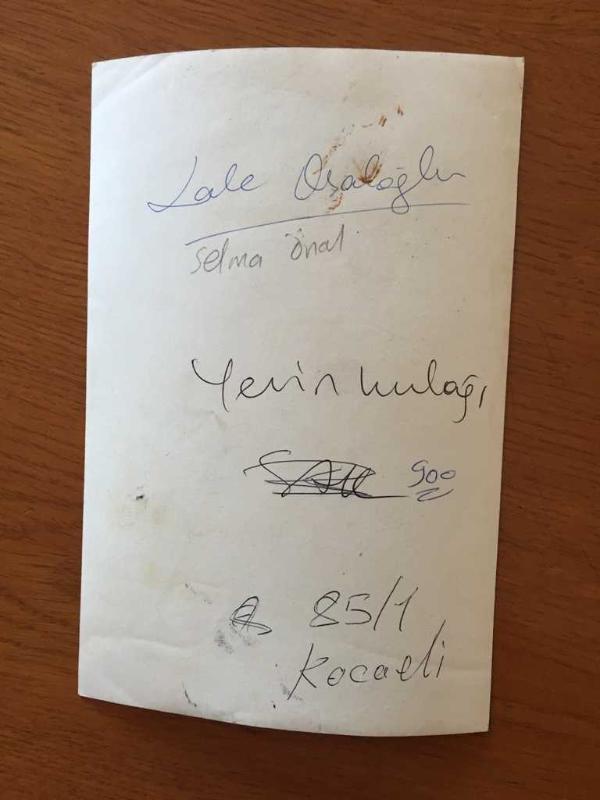 Lale
Selma Önal
Yerin kulağı
900
85/1
Kocaeli